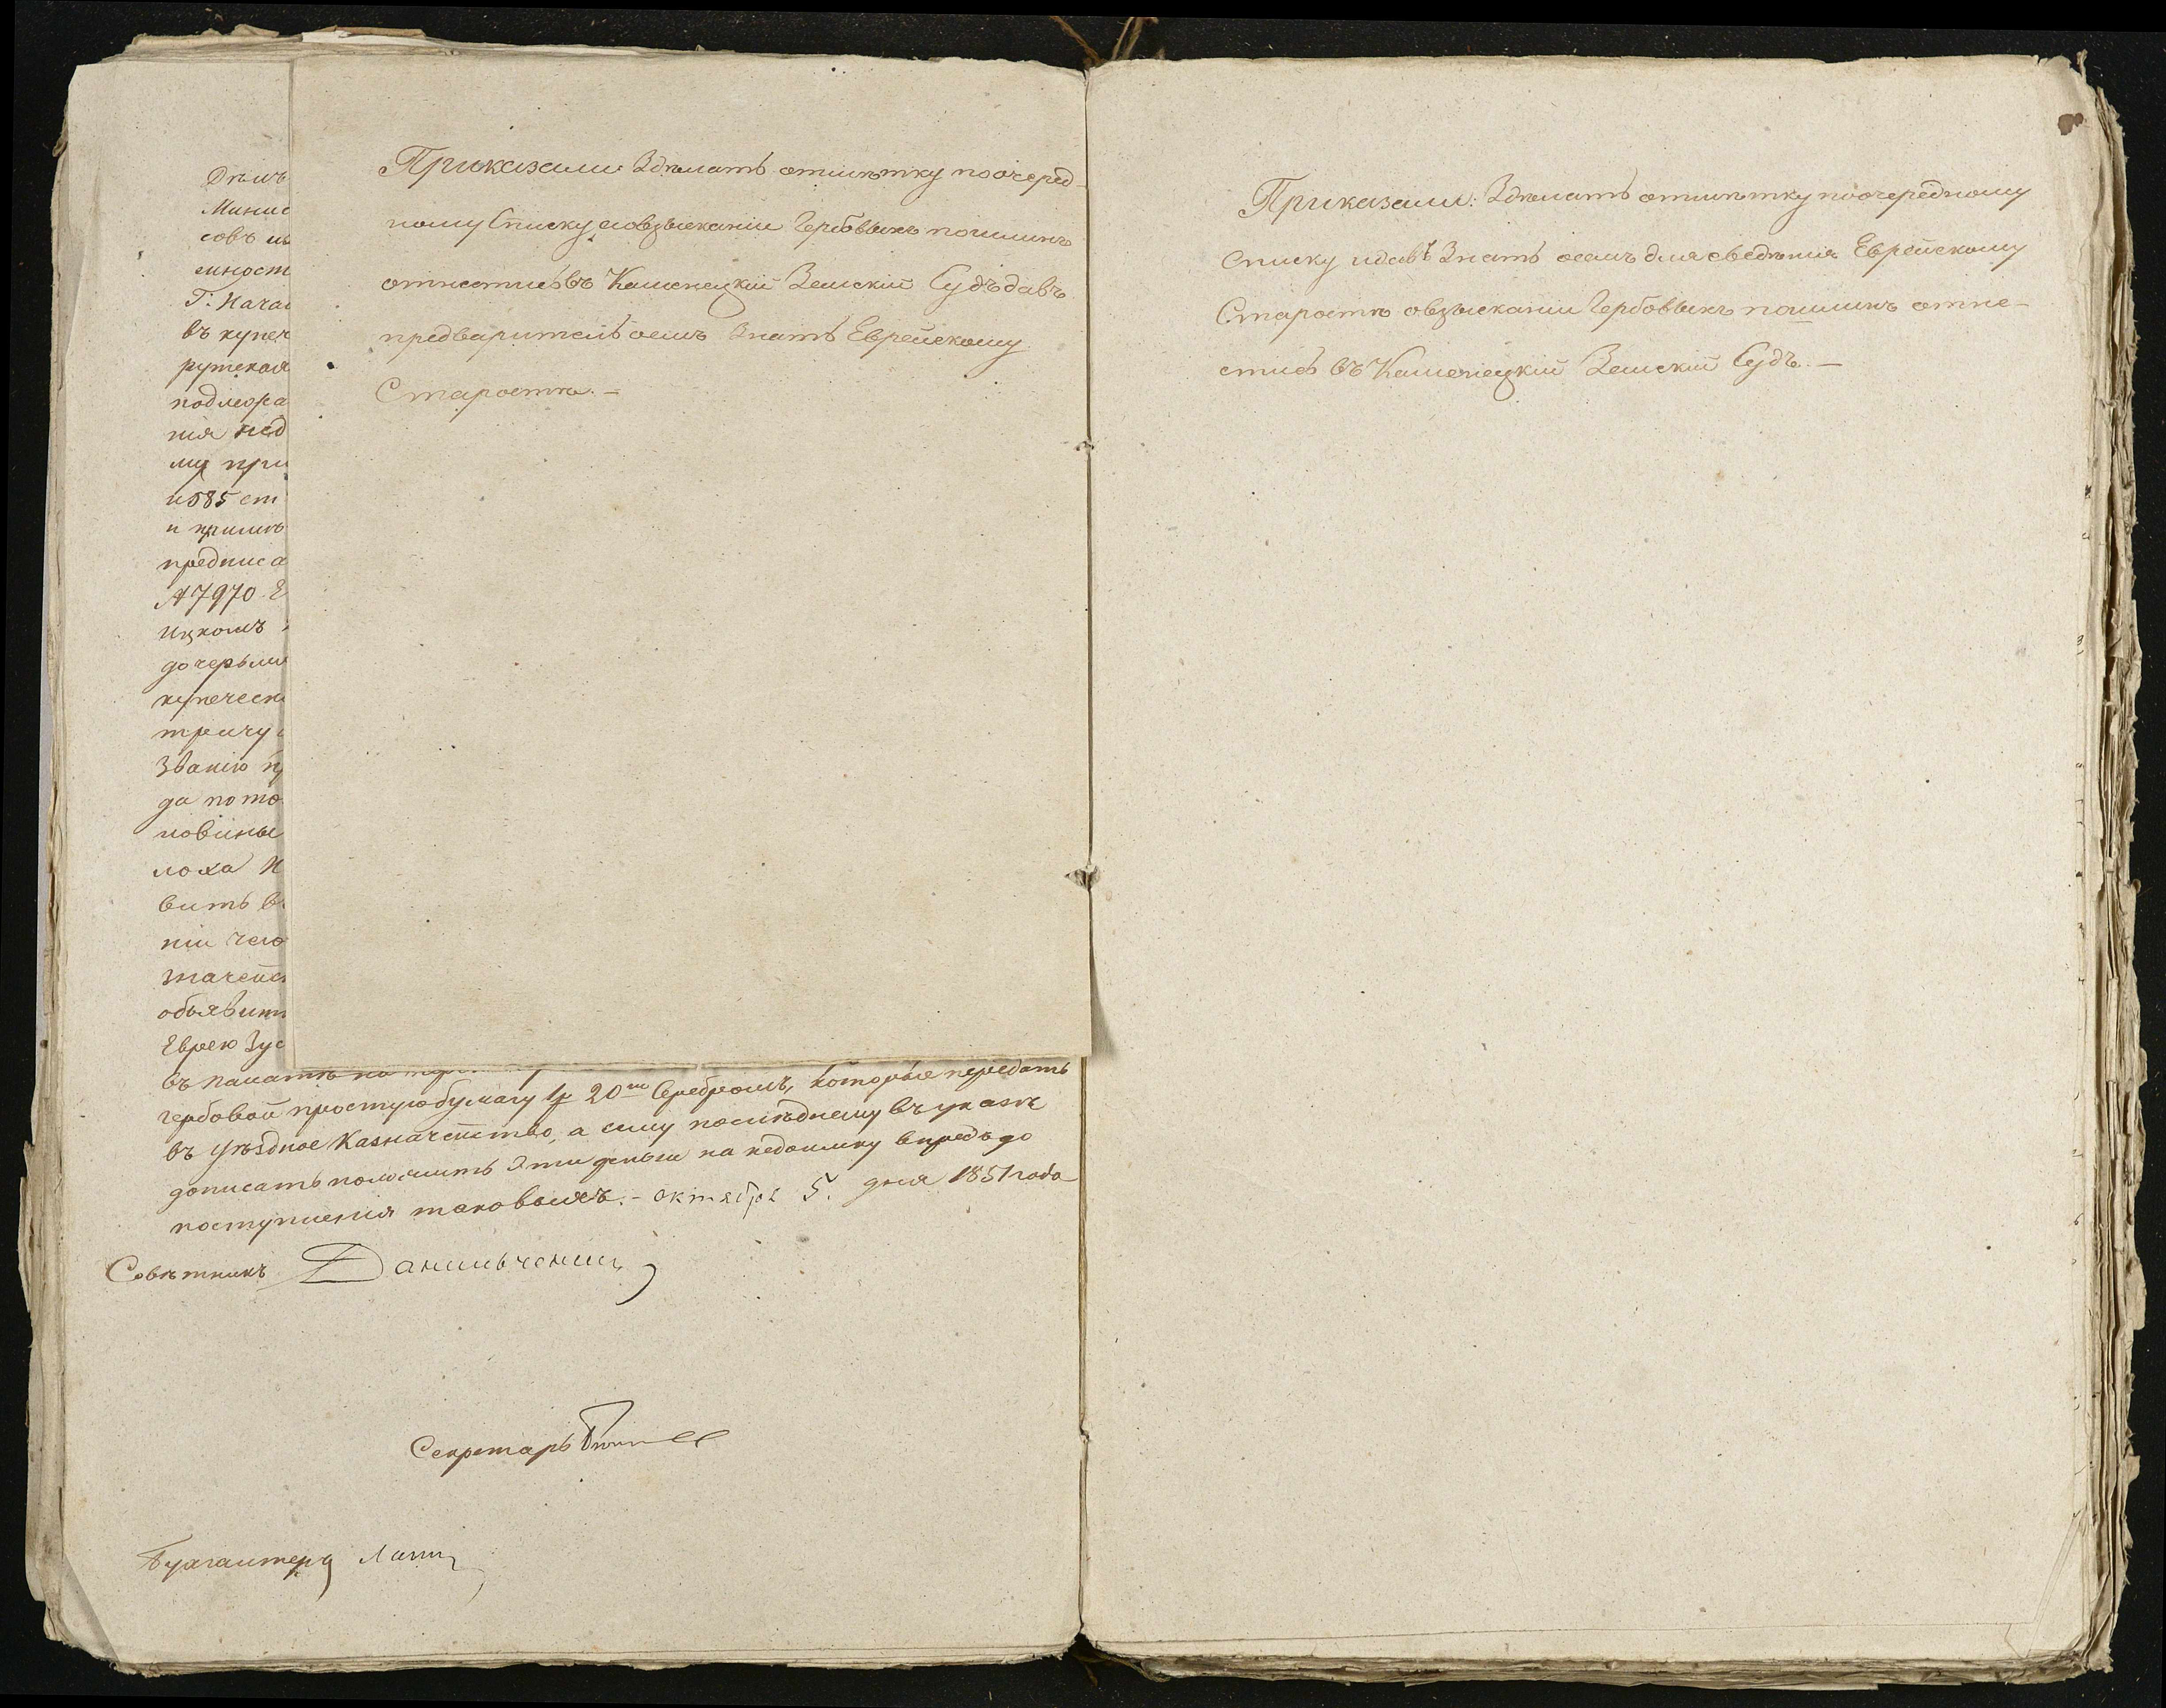 Приказали: Здѣлать отмѣтку по очеред-
ному Списку, а о взысканіи Гербовыхъ пошлинъ
отнестись въ Каменецкій Земскій Судъ давъ
предварительо семъ Знать Еврейскому
Старостѣ. —
Дѣлъ
Минис
совъ
емност
Г: Нача
въ купеч
рутская
подлежа
нія нед
му при
и 585 ст
и примѣ
предписа
№ 7970 Е
Ицкомъ
дочерьми
купеческ
тричу
Званію п
да по то
ловины
лоха И
вить в
ніи чего
значейс
объявит
Еврею Зус
въ палатѣ на
гербовой простую бумагу 1 р 20 Серебромъ, которые передать
въ уѣздное Казначейство, а сему послѣднему въ указѣ
дописать положить эти деньги на недоимку впредь до
поступленія таковыхъ. - октября 5. дня 1851 года
Совѣтникъ Данильченко
Секретарь
Бухгалтеръ
Приказали: Здѣлать отмѣтку по очередному
Списку и давъ Знать о семъ для сведѣнія Еврейскому
Старостѣ о взысканіи Гербовыхъ пошлинъ отне-
стись въ Каменецкій Земскій Судъ. —